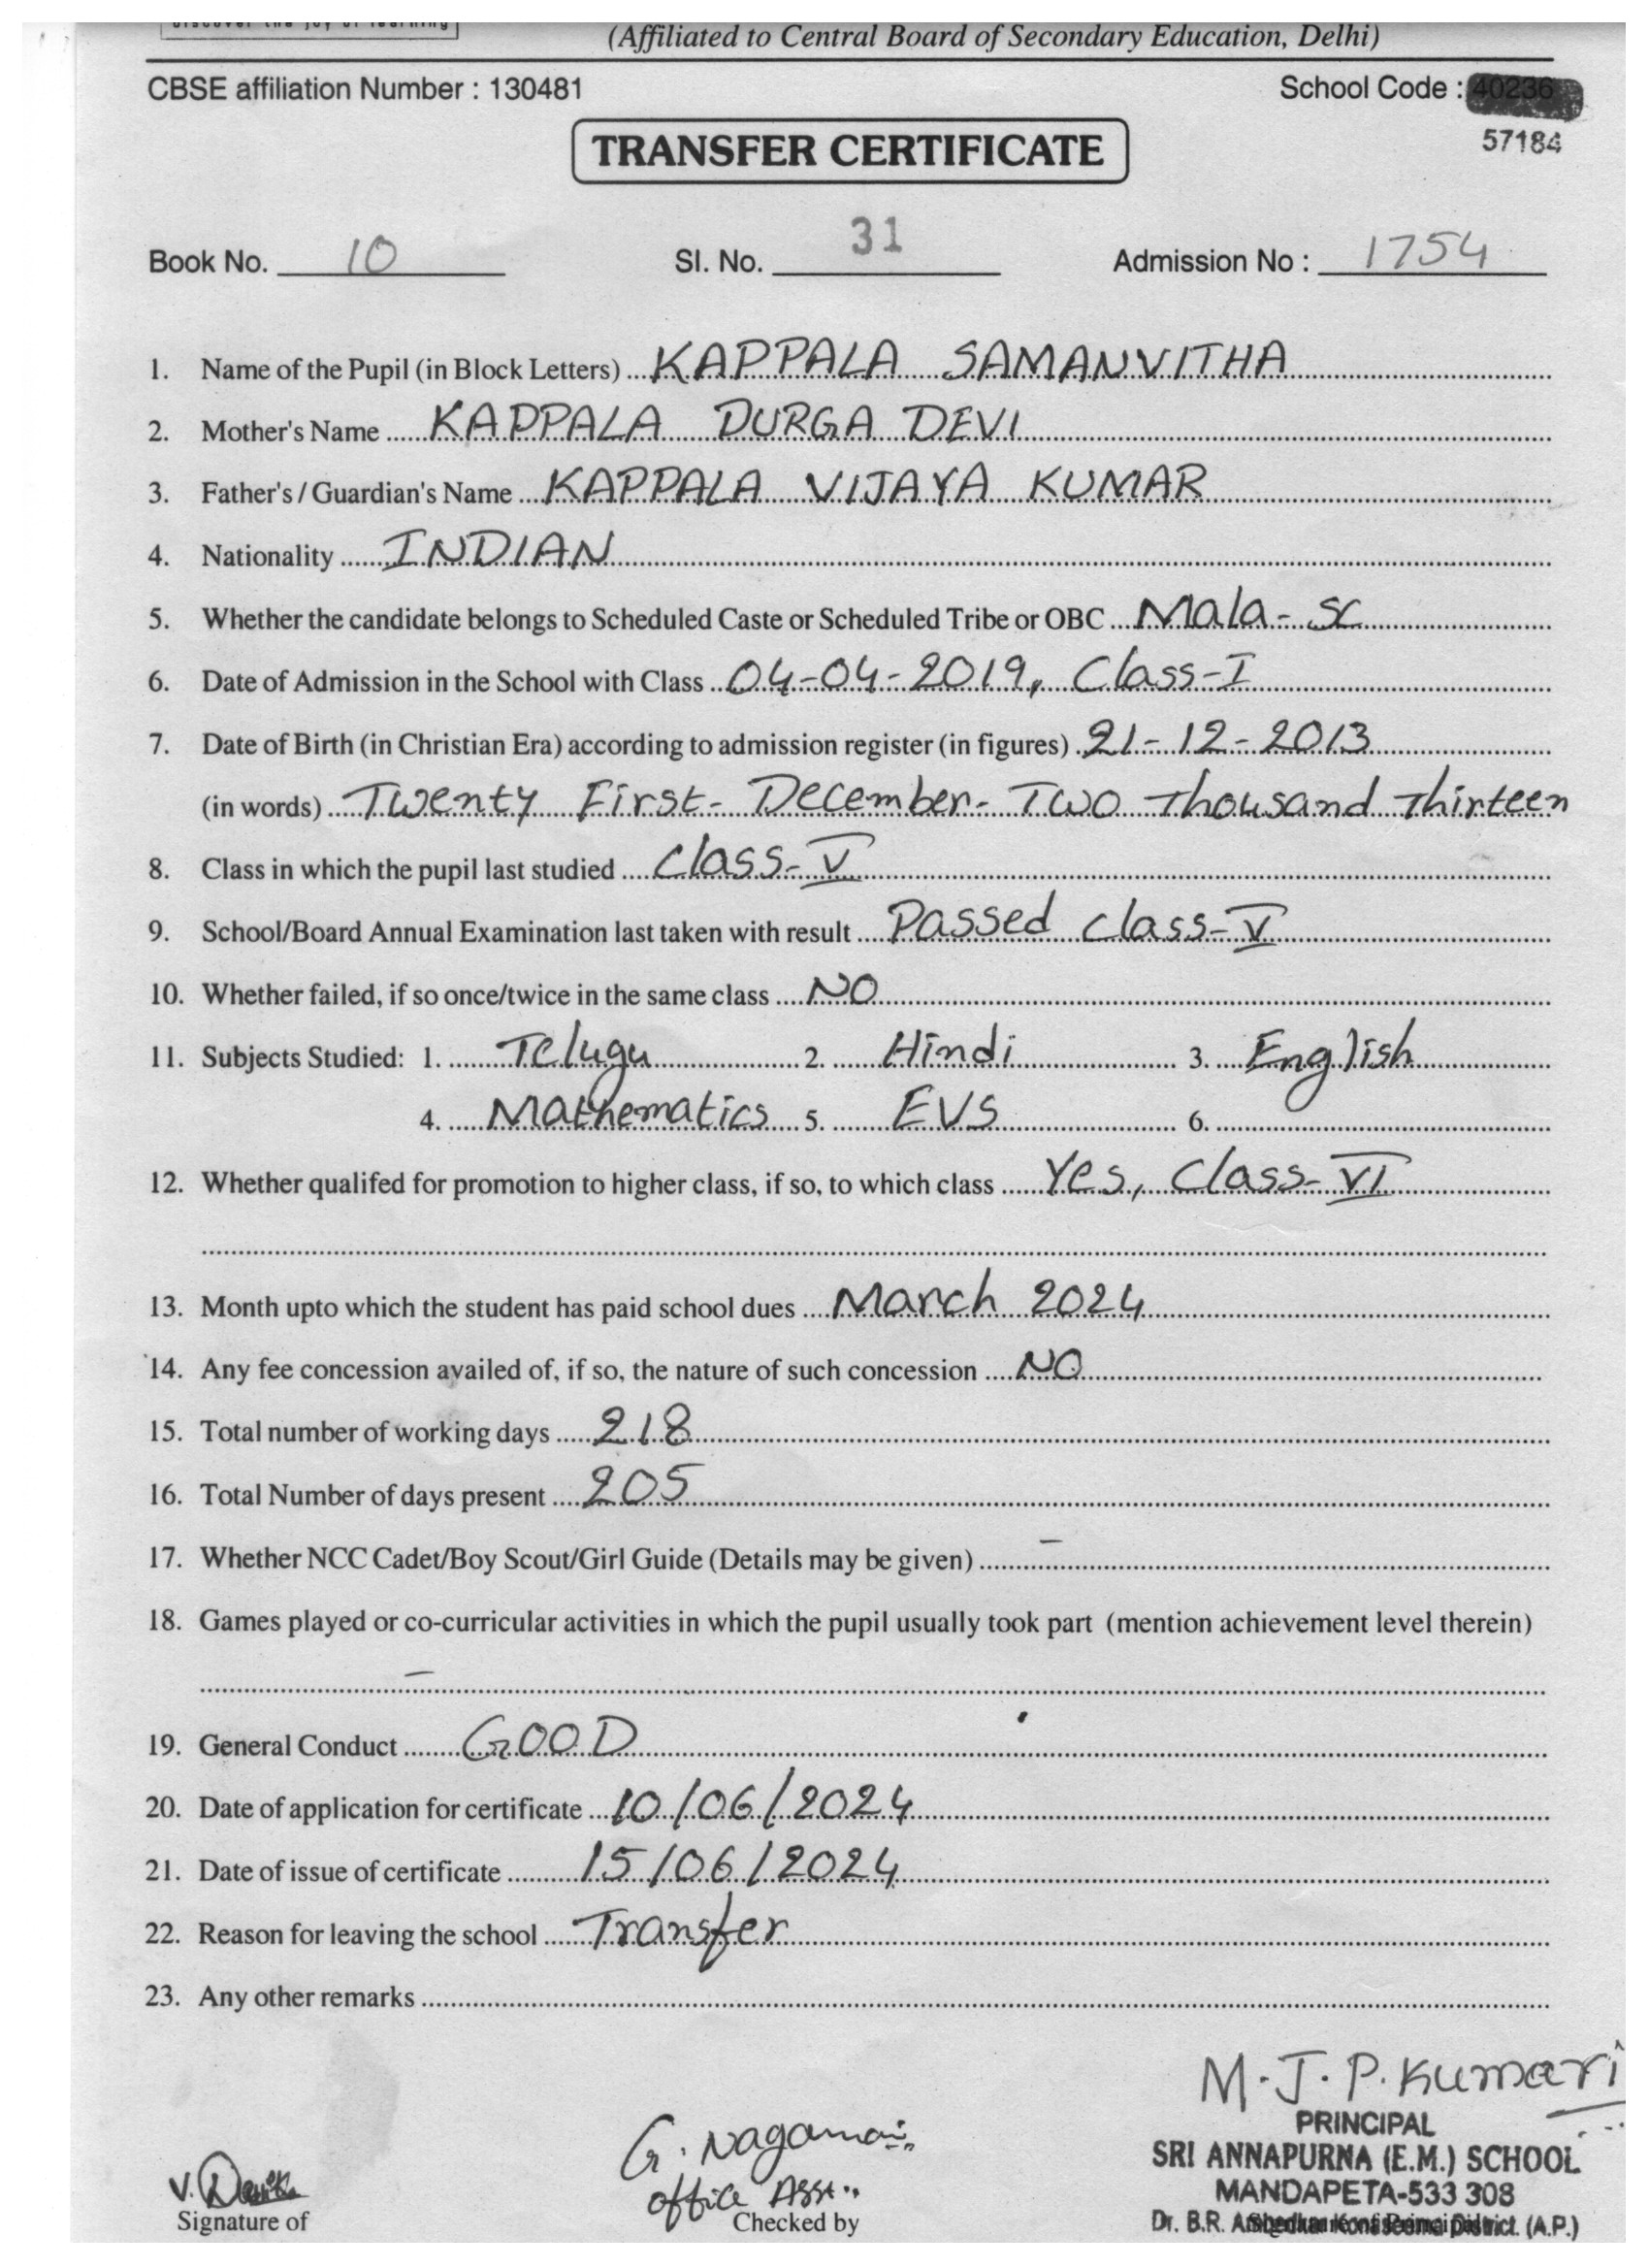 discover the joy of learning
(Affiliated to Central Board of Secondary Education, Delhi)
CBSE affiliation Number : 130481 School Code : 40236
57184
TRANSFER CERTIFICATE
Book No. 10 Sl. No. 31 Admission No : 1754
1. Name of the Pupil (in Block Letters) KAPPALA SAMANVITHA
2. Mother's Name KAPPALA DURGA DEVI
3. Father's / Guardian's Name KAPPALA VIJAYA KUMAR
4. Nationality INDIAN
5. Whether the candidate belongs to Scheduled Caste or Scheduled Tribe or OBC Mala- SC
6. Date of Admission in the School with Class 04-04-2019, Class-I
7. Date of Birth (in Christian Era) according to admission register (in figures) 21-12-2013
(in words) Twenty First- December- Two Thousand Thirteen
8. Class in which the pupil last studied class-V
9. School/Board Annual Examination last taken with result Passed class-V
10. Whether failed, if so once/twice in the same class NO
11. Subjects Studied: 1. Telugu 2. Hindi 3. English
4. Mathematics 5. EVS 6.
12. Whether qualifed for promotion to higher class, if so, to which class Yes, Class-VI
13. Month upto which the student has paid school dues March 2024
14. Any fee concession availed of, if so, the nature of such concession NO
15. Total number of working days 218
16. Total Number of days present 205
17. Whether NCC Cadet/Boy Scout/Girl Guide (Details may be given) –
18. Games played or co-curricular activities in which the pupil usually took part (mention achievement level therein)
–
19. General Conduct GOOD
20. Date of application for certificate 10/06/2024
21. Date of issue of certificate 15/06/2024
22. Reason for leaving the school Transfer
23. Any other remarks
M.J.P.Kumari
PRINCIPAL
SRI ANNAPURNA (E.M.) SCHOOL
MANDAPETA-533 308
Dr. B.R. Ambedkar Konaseema District. (A.P.)
G. Nagamani
office Asst..
Checked by
V.
Signature of